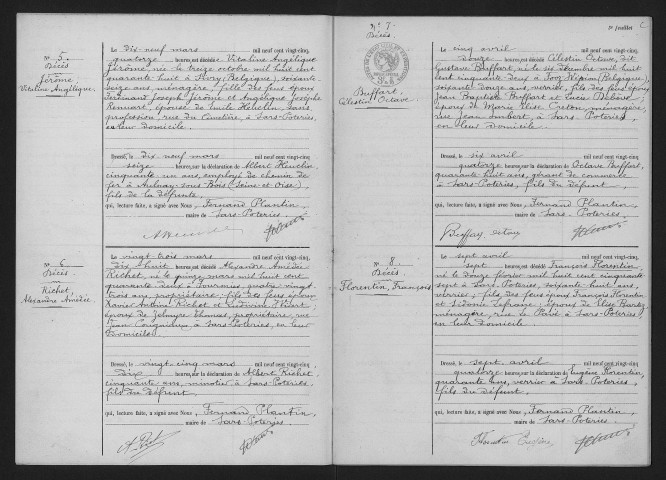 N° 5
Décès
Jérôme,
Vitaline Angélique.
Le dix-neuf mars mil neuf cent vingt-cinq,
quatorze heures, est décédée Vitaline Angélique
Jérôme, née le treize octobre mil huit cent
quarante huit à Pory (Belgique), soixante
seize ans, ménagère, fille des feus époux
Ferdinand Joseph Jérôme et Angélique Josèphe
épouse de Emile Heuclin, sans
profession, rue du Cimetière, à Sars-Poteries,
en leur domicile
Dressé, le dix neuf mars mil neuf cent vingt-cinq
seize heures, sur la déclaration de Albert Heuclin,
cinquante un ans, employé de chemin de
fer à Aulnay-sous-Bois (Seine et Oise),
fils de la défunte.
qui, lecture faite, a signé avec Nous, Fernand Plantin,
maire de Sars-Poteries.
N° 6
Décès.
Richet,
Alexandre Amédée
Le vingt-trois mars mil neuf cent vingt-cinq,
dix huit heures, est décédé Alexandre Amédée
Richet, né le quinze mars mil huit cent
quarante deux à Fourmies, quatre vingt
trois ans, propriétaire, fils des feus époux
Xavier Antoine Richet et
époux de Zelmyre Thomas, propriétaire, rue
Jean à Sars-Poteries, en leur
domicile.
Dressé, le vingt-cinq mars mil neuf cent vingt-cinq
dix heures, sur la déclaration de Albert Richet,
cinquante ans, minotier à Sars-Poteries,
fils du défunt.
qui, lecture faite, a signé avec Nous, Fernand Plantin,
maire de Sars-Poteries.
N° 7
Décès.
Buffart,
Célestin Octave.
Le cinq avril mil neuf cent vingt-cinq,
douze heures, est décédé Célestin Octave, dit
Gustave Buffart, né le six décembre mil huit
cent cinquante deux à (Belgique),
soixante douze ans, verrier, fils des feus époux
Jean Baptiste Buffart et
époux de Marie Elise Creton, ménagère,
rue Jean Imbert, à Sars Poteries,
en leur domicile
Dressé, le six avril mil neuf cent vingt-cinq
quatorze heures, sur la déclaration de Octave Buffart,
quarante huit ans, gérant de commerce
à Sars-Poteries, fils du défunt
qui, lecture faite, a signé avec Nous, Fernand Plantin
maire de Sars-Poteries.
Buffart Octave
N° 8
Décès.
Florentin, François
Le sept avril mil neuf cent vingt-cinq,
sept heures, est décédé François Florentin,
né le douze février mil huit cent cinquante
sept à Sars Poteries, soixante huit ans,
verrier, fils des feus époux François Florentin
et Sidonie Lefrane; époux de Elise
ménagère, rue le Pavé à Sars-Poteries
en leur domicile
Dressé, le sept avril mil neuf cent vingt-cinq
quatorze heures, sur la déclaration de Eugène Florentin,
quarante ans, verrier à Sars-Poteries,
fils du défunt.
qui, lecture faite, a signé avec Nous, Fernand Plantin,
maire de Sars-Poteries.
Florentin Eugène